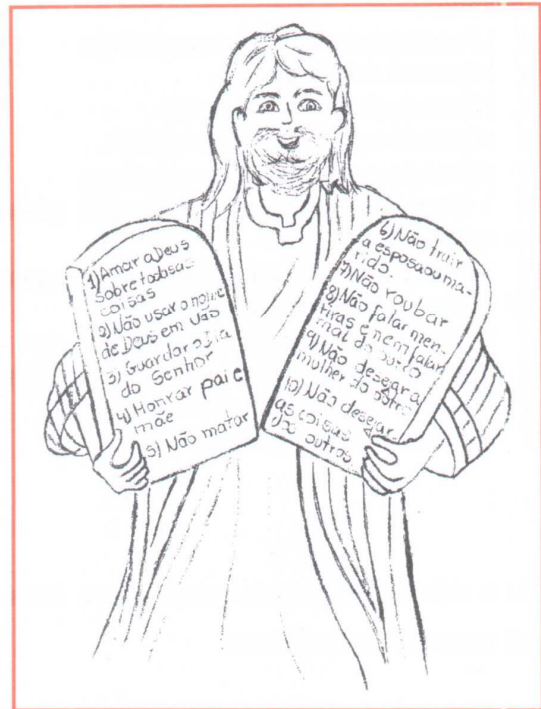 1) Amar a Deus
sobre todas as
coisas
2) Não usar o nome
de Deus em vão
3) Guardar o Dia
do Senhor
4) Honrar pai e
mãe
5) Não matar
6) Não trair
a esposa ou ma-
rido.
7) Não roubar
8) Não falar men-
tiras e nem falar
mal do outro
9) Não desejar a
mulher do outro
10) Não desejar
as coisas
dos outros